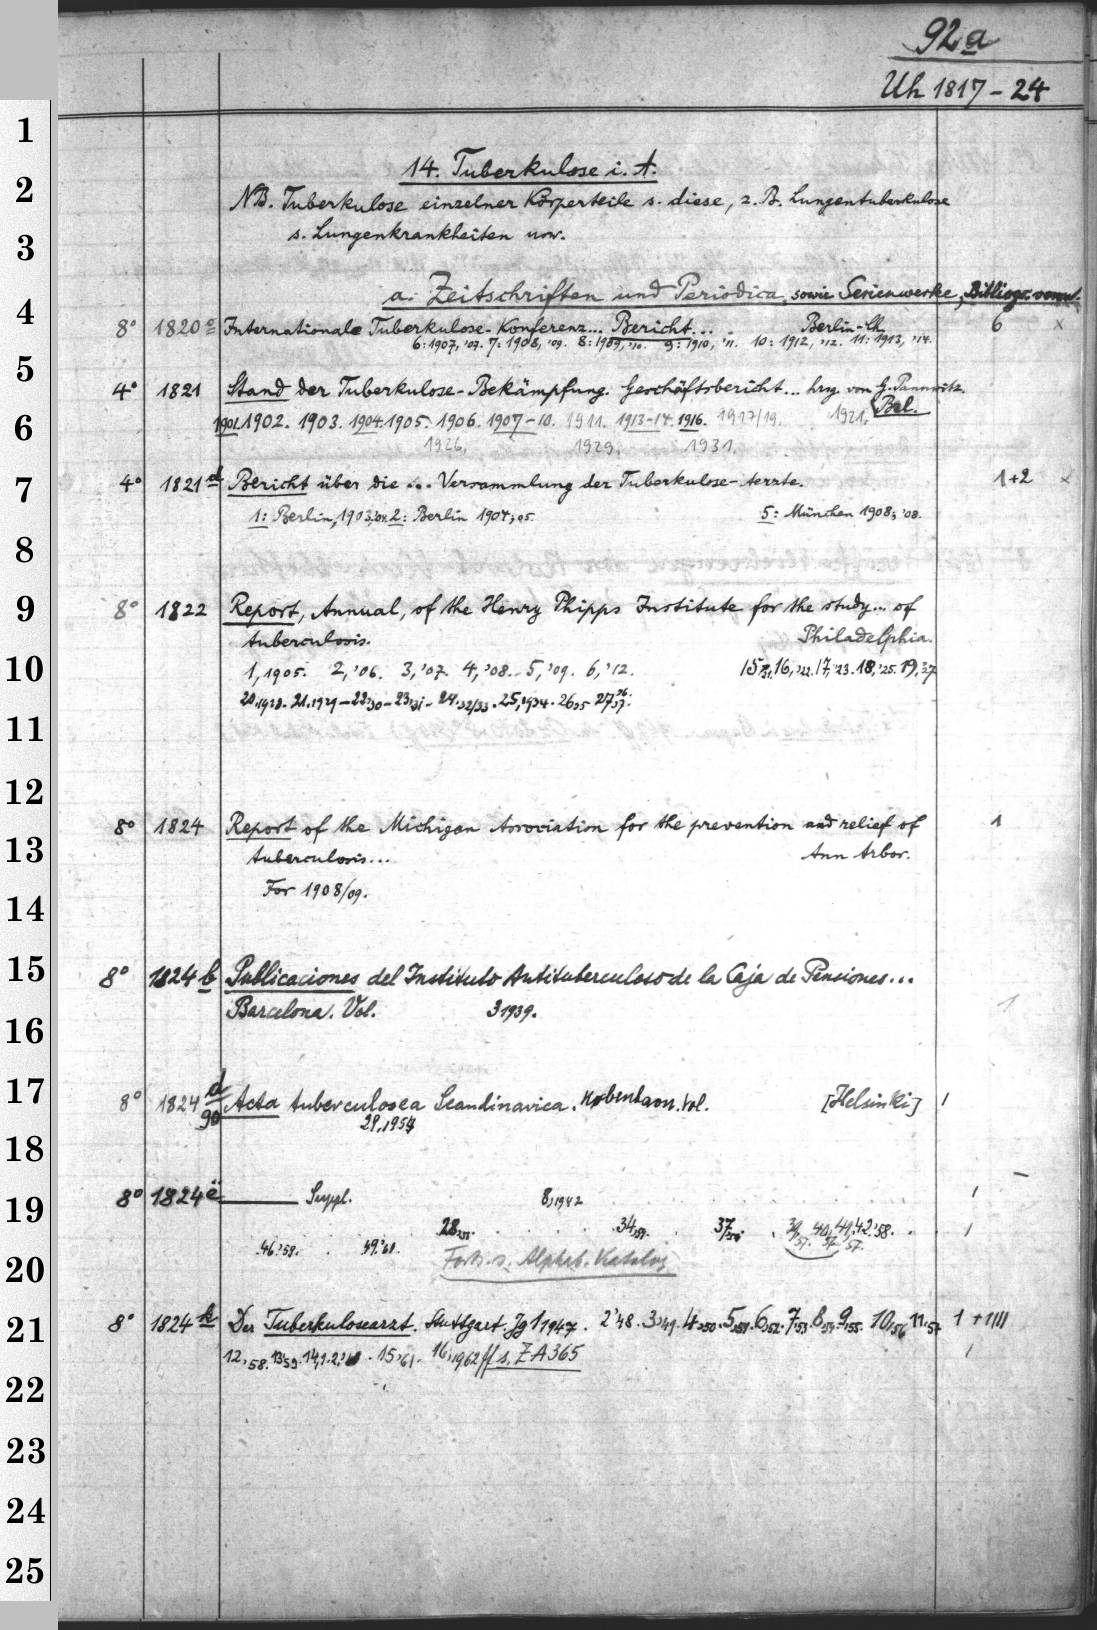 92a
Uh 1817 - 24
1
2
3
4
5
6
7
8
9
10
11
12
13
14
15
16
17
18
19
20
21
22
23
24
25
14. Tuberkulose i. A.
NB. Tuberkulose einzelner Körperteile s. diese, z. B. Lungentuberkulose
s. Lungenkrankheiten usw.
a. Zeitschriften und Periodica, sowie Serienwerke, Bibliogr.
8° 1820 Internationale Tuberkulose-Konferenz... Bericht... Berlin-Ch. 6 x
6: 1907, '07. 7: 1908, '09. 8: 1909, '10. 9: 1910, '11. 10: 1912, '12. 11: 1913, '14.
4° 1821 Stand der Tuberkulose-Bekämpfung. Geschäftsbericht... hrsg. von G. Pannwitz.
1901. 1902. 1903. 1904. 1905. 1906. 1907-10. 1911. 1913-14. 1916. 1917/19. 1921. Brl.
1926. 1929. 1931.
4° 1821d Bericht über die ... Versammlung der Tuberkulose-Aerzte. 1+2 x
1: Berlin, 1903, 2: Berlin 1904, 05. 5: München 1908, '08.
8° 1822 Report, Annual, of the Henry Phipps Institute for the study... of
tuberculosis. Philadelphia.
1, 1905. 2, '06. 3, '07. 4, '08. 5, '09. 6, '12. 15, 16, '22. 17, '23. 18, '25. 19, '27
20, 1928. 21, 1929 - 22, 30 - 23, 31 - 24, 32/33. 25, 1934. 26, 35 27, 36/37.
8° 1824 Report of the Michigan Association for the prevention and relief of 1
tuberculosis... Ann Arbor.
For 1908/09.
8° 1824b Publicaciones del Instituto Antituberculoso de la Caja de Pensiones...
Barcelona. Vol. 3 1939. 1
8° 1824d Acta tuberculosea Scandinavica. København. Vol. [Helsinki] 1
90 29, 1954
8° 1824e — Suppl. 8, 1942 1
28, 34, 37, 39, 40, 41, 42, '58. 1
46, '59. 49, '61. 57. 57. 57.
Forts. s. Alphab. Katalog
8° 1824k Der Tuberkulosearzt. Stuttgart. Jg 1 1947. 2 '48. 3, 49. 4, 50. 5, 51. 6, 52. 7, 53. 8, 54. 9, 55. 10, 56 11, 57 1 + 1111
12, 58. 13, 59. 15, '61. 16, 1962 ff s. ZA 365 1